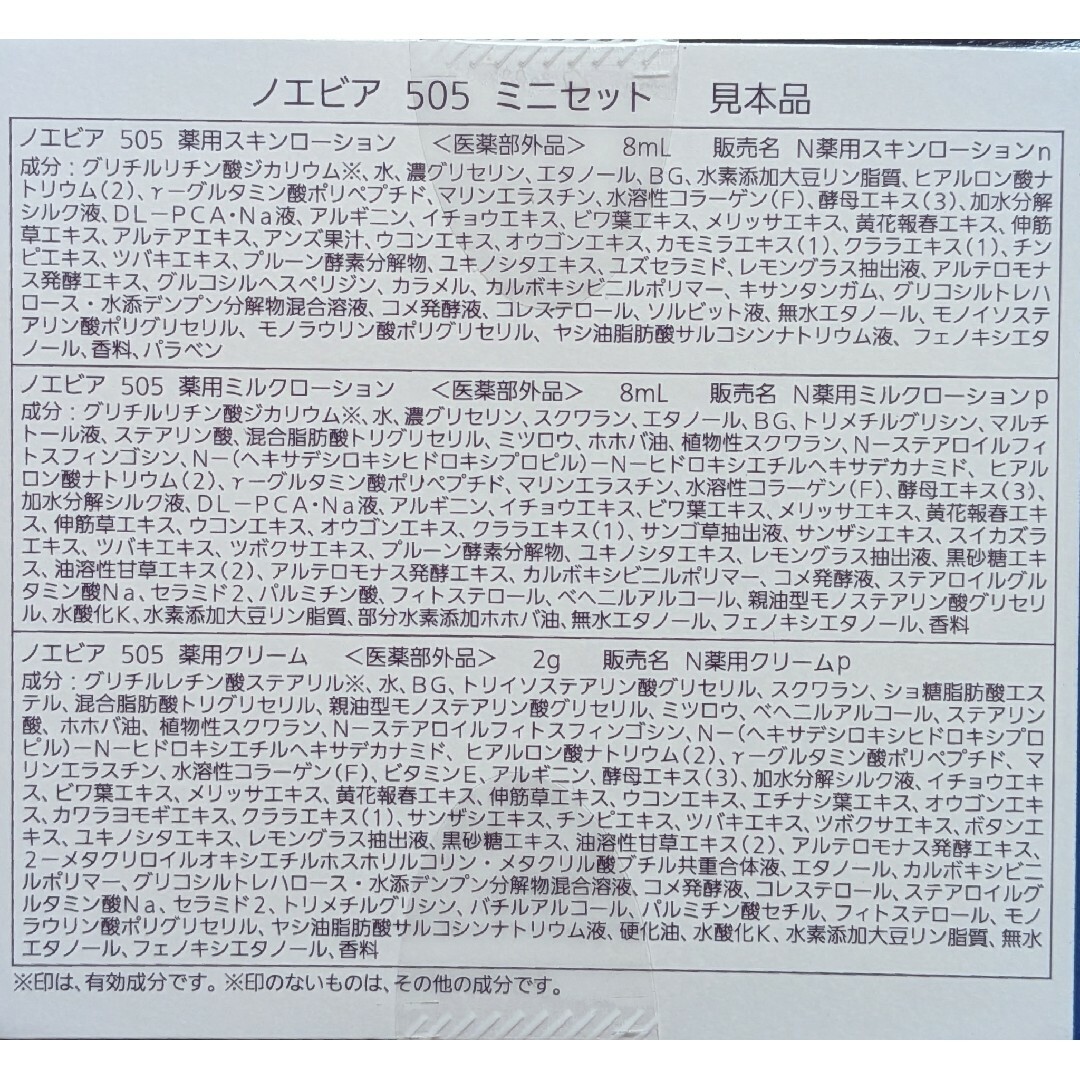 ノエビア 505 ミニセット　見本品
ノエビア 505 薬用スキンローション　＜医薬部外品＞　8mL　販売名 N薬用スキンローションn
成分：グリチルリチン酸ジカリウム※、水、濃グリセリン、エタノール、BG、水素添加大豆リン脂質、ヒアルロン酸ナ
トリウム(2)、γ－グルタミン酸ポリペプチド、マリンエラスチン、水溶性コラーゲン(F)、酵母エキス(3)、加水分解
シルク液、DL－PCA・Na液、アルギニン、イチョウエキス、ビワ葉エキス、メリッサエキス、黄花報春エキス、伸筋
草エキス、アルテアエキス、アンズ果汁、ウコンエキス、オウゴンエキス、カモミラエキス(1)、クララエキス(1)、チン
ピエキス、ツバキエキス、プルーン酵素分解物、ユキノシタエキス、ユズセラミド、レモングラス抽出液、アルテロモナ
ス発酵エキス、グルコシルヘスペリジン、カラメル、カルボキシビニルポリマー、キサンタンガム、グリコシルトレハ
ロース・水添デンプン分解物混合溶液、コメ発酵液、コレステロール、ソルビット液、無水エタノール、モノイソステ
アリン酸ポリグリセリル、モノラウリン酸ポリグリセリル、ヤシ油脂肪酸サルコシンナトリウム液、フェノキシエタ
ノール、香料、パラベン
ノエビア 505 薬用ミルクローション　＜医薬部外品＞　8mL　販売名 N薬用ミルクローションp
成分：グリチルリチン酸ジカリウム※、水、濃グリセリン、スクワラン、エタノール、BG、トリメチルグリシン、マルチ
トール液、ステアリン酸、混合脂肪酸トリグリセリル、ミツロウ、ホホバ油、植物性スクワラン、N－ステアロイルフィ
トスフィンゴシン、N－(ヘキサデシロキシヒドロキシプロピル)－N－ヒドロキシエチルヘキサデカナミド、ヒアル
ロン酸ナトリウム(2)、γ－グルタミン酸ポリペプチド、マリンエラスチン、水溶性コラーゲン(F)、酵母エキス(3)、
加水分解シルク液、DL－PCA・Na液、アルギニン、イチョウエキス、ビワ葉エキス、メリッサエキス、黄花報春エキ
ス、伸筋草エキス、ウコンエキス、オウゴンエキス、クララエキス(1)、サンゴ草抽出液、サンザシエキス、スイカズラ
エキス、ツバキエキス、ツボクサエキス、プルーン酵素分解物、ユキノシタエキス、レモングラス抽出液、黒砂糖エキ
ス、油溶性甘草エキス(2)、アルテロモナス発酵エキス、カルボキシビニルポリマー、コメ発酵液、ステアロイルグル
タミン酸Na、セラミド2、パルミチン酸、フィトステロール、ベヘニルアルコール、親油型モノステアリン酸グリセリ
ル、水酸化K、水素添加大豆リン脂質、部分水素添加ホホバ油、無水エタノール、フェノキシエタノール、香料
ノエビア 505 薬用クリーム　＜医薬部外品＞　2g　販売名 N薬用クリームp
成分：グリチルレチン酸ステアリル※、水、BG、トリイソステアリン酸グリセリル、スクワラン、ショ糖脂肪酸エス
テル、混合脂肪酸トリグリセリル、親油型モノステアリン酸グリセリル、ミツロウ、ベヘニルアルコール、ステアリン
酸、ホホバ油、植物性スクワラン、N－ステアロイルフィトスフィンゴシン、N－(ヘキサデシロキシヒドロキシプロ
ピル)－N－ヒドロキシエチルヘキサデカナミド、ヒアルロン酸ナトリウム(2)、γ－グルタミン酸ポリペプチド、マ
リンエラスチン、水溶性コラーゲン(F)、ビタミンE、アルギニン、酵母エキス(3)、加水分解シルク液、イチョウエキ
ス、ビワ葉エキス、メリッサエキス、黄花報春エキス、伸筋草エキス、ウコンエキス、エチナシ葉エキス、オウゴンエキ
ス、カワラヨモギエキス、クララエキス(1)、サンザシエキス、チンピエキス、ツバキエキス、ツボクサエキス、ボタンエ
キス、ユキノシタエキス、レモングラス抽出液、黒砂糖エキス、油溶性甘草エキス(2)、アルテロモナス発酵エキス、
2－メタクリロイルオキシエチルホスホリルコリン・メタクリル酸ブチル共重合体液、エタノール、カルボキシビニ
ルポリマー、グリコシルトレハロース・水添デンプン分解物混合溶液、コメ発酵液、コレステロール、ステアロイルグ
ルタミン酸Na、セラミド2、トリメチルグリシン、バチルアルコール、パルミチン酸セチル、フィトステロール、モノ
ラウリン酸ポリグリセリル、ヤシ油脂肪酸サルコシンナトリウム液、硬化油、水酸化K、水素添加大豆リン脂質、無水
エタノール、フェノキシエタノール、香料
※印は、有効成分です。※印のないものは、その他の成分です。